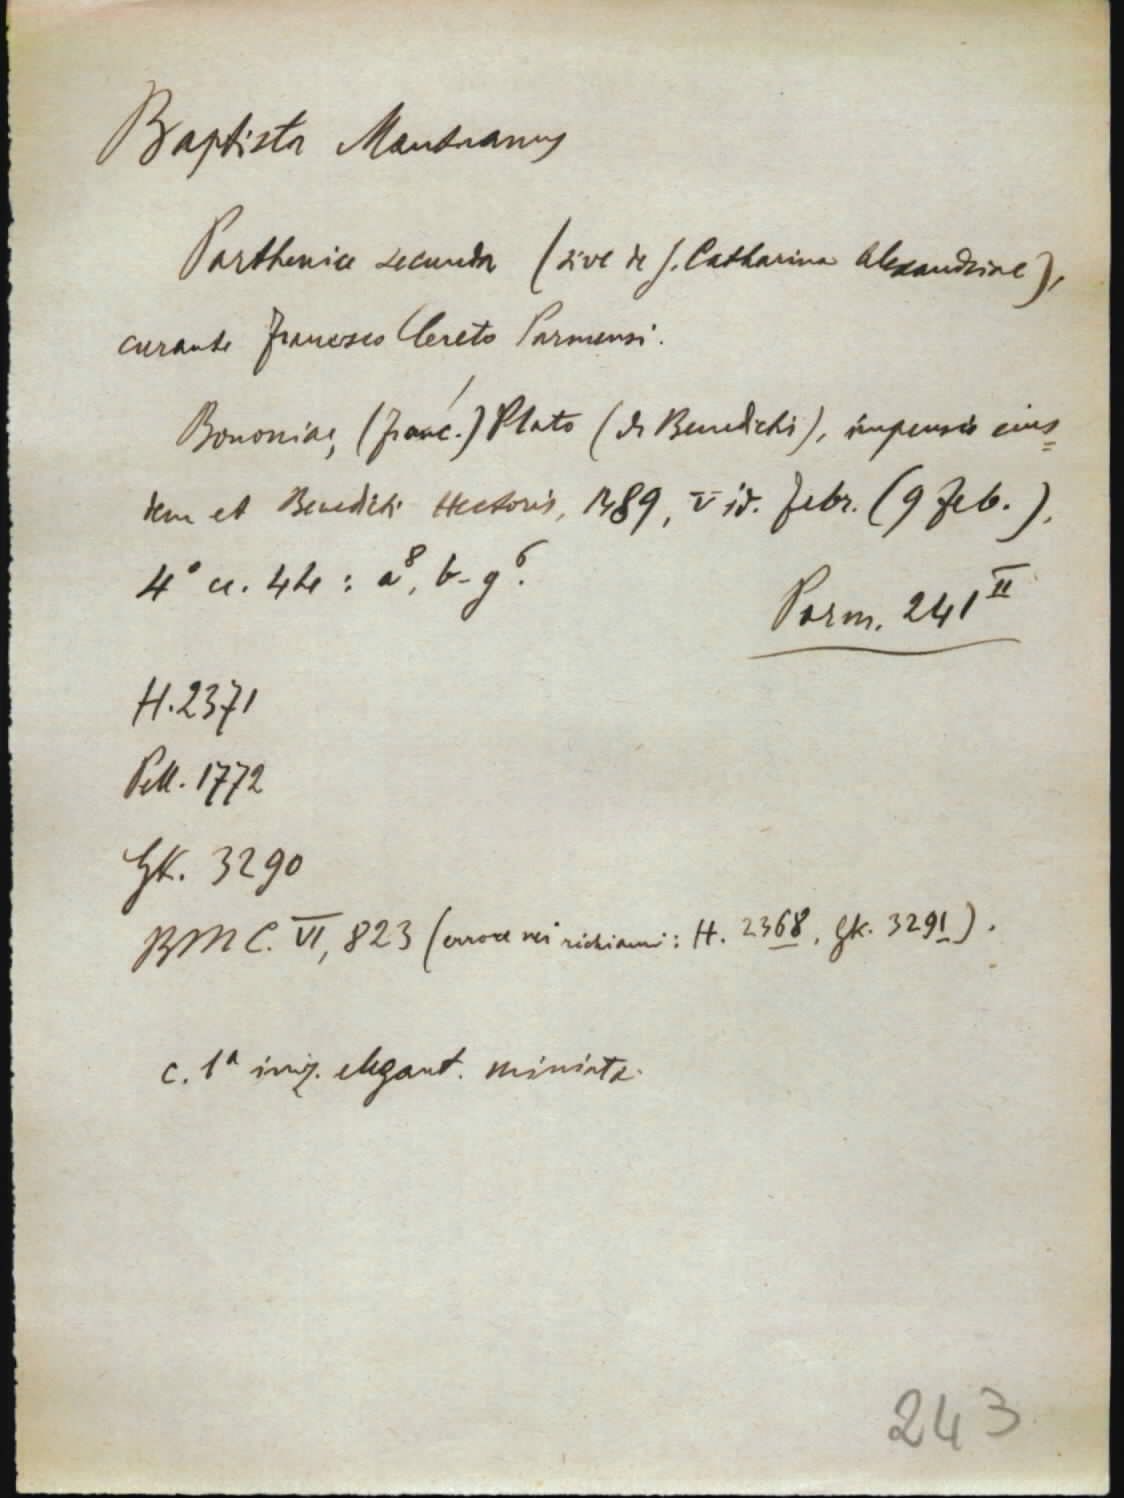 Baptista Mantuanus
Parthenice secunda (sive de S. Catharina Alexandrina),
curante Francesco Cereto Parmensi.
Bononiae, (Franc.) Plato (de Benedictis), impensis eius=
dem et Benedicti Hectoris, 1489, V id. febr. (9 feb.),
4° cc. 44 : a⁸, b-g⁶.
Parm. 241 II
H. 2371
Pell. 1772
GK. 3290
BMC. VI, 823 (errore nei richiami: H. 2368, GK. 3291).
c. 1ª iniz. elegant. miniata.
243